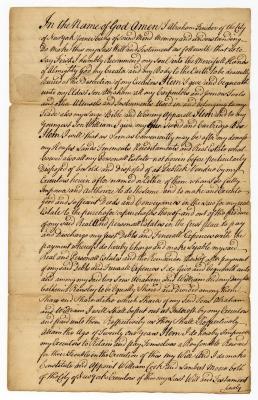 In the Name of God Amen I Abraham Barker of the City
of New York Joiner being of Sound Mind Memory and Understanding
Do make this my last Will and Testament as followeth that is to
Say First I humbly Recommend my Soul into the Merciful Hands
of Almighty God my Creator and my Body to the Earth to be decently
buried at the discretion of my Executors Item I give and Bequeath
unto my Eldest Son Abraham all my Carpenters and Joiners Tools
and other Utensils and Instruments Used in and belonging to my
Trade also my large Bible and Wearing Apparell Item and to my
Youngest Son William I give my Sword and
Item I Will that as soon as Conveniently may be after my decease
my Houses Lands Tenements Hereditaments and Real Estate what
soever also all my Personal Estate not herein before particularly
Disposed of be sold and disposed of at Publick Vendue by my
Executors herein after named or Either of them whom I do fully
Impower and Authorize to do the same and to make and Execute
good and sufficient deeds and Conveyances in the Law for my real
Estate to the purchaser or purchasers thereof and out of the produce
of my said Real and Personal Estates in the first place to pay
and discharge my just Debts and Funerall Expences with the
payment whereof I do hereby Charge and make lyable my said
Real and Personal Estates and the remainder thereof after payment
of my said debts and Funerall Expences I do Give and bequeath unto
and among my said Sons Abraham and William and my Daughters
to be Equally Shared and divided among them
Share and Share alike which Shares of my said Sons Abraham
and William I will shall be put out at Interest by my Executors
and paid unto them Respectively as they Shall Respectively
attain the Age of Twenty one years Item I do hereby Impower
my Executors to Retain and pay themselves a Reasonable Reward
for their trouble in the Execution of this my Will And I do make
Constitute and Appoint William Cock and Lambert Moore both
of the City of New York Executors of this my last Will and Testament